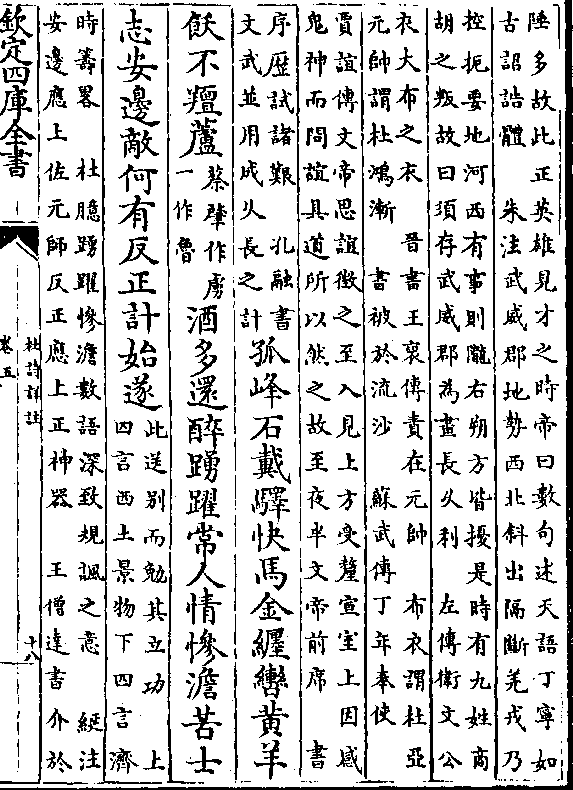 陲多故此正英雄見才之時帝曰數句述天語丁寧如
古詔誥體　朱注武威郡地勢西北斜出隔斷羌戎乃
控扼要地河西有事則隴右朔方皆擾是時有九姓商
胡之叛故曰須存武威郡為畫長久利　左傳衛文公
衣大布之衣　晉書王裒傳責在元帥　布衣謂杜亞
元帥謂杜鴻漸　書被於流沙　蘇武傳丁年奉使
賈誼傳文帝思誼徴之至入見上方受釐宣室上因感
鬼神而問誼具道所以然之故至夜半文帝前席　書
序歴試諸艱　孔融書
文武並用成乆長之計
孤峰石戴驛快馬金纒轡黄羊
飫不羶蘆
蔡肈作虜
一作魯
酒多還醉踴躍常人情慘澹苦士
志安邊敵何有反正計始遂
此送別而勉其立功　上
四言西土景物下四言濟
時籌畧　杜臆踴躍慘澹數語深致規諷之意　綎注
安邊應上佐元師反正應上正神器　王僧達書介於
欽定四庫全書
杜詩詳註
卷五
十八